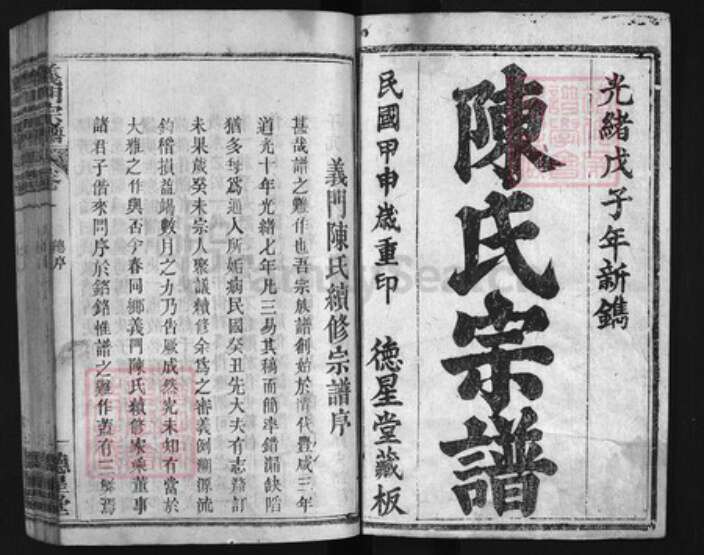 光緒戊子年新鐫
陳氏宗譜
民國甲申歲重印 德星堂藏板
義門陳氏續修宗譜序
甚哉譜之難作也吾宗族譜創始於清代豐咸三年
道光十年光緒七年凡三易其稿而簡率錯漏缺陷
猶多每為通人所姤病民國癸丑先大夫有志發訂
未果歲癸未宗人聚議續修余為之審義例溯源流
鈎稽損益竭數月之力乃告厥成然究未知有當於
大雅之作與否今春同鄉義門陳氏續修家乘董事
諸君子偕來問序於銘銘惟譜之難作蓋有三
義門宗譜
總序
德星堂